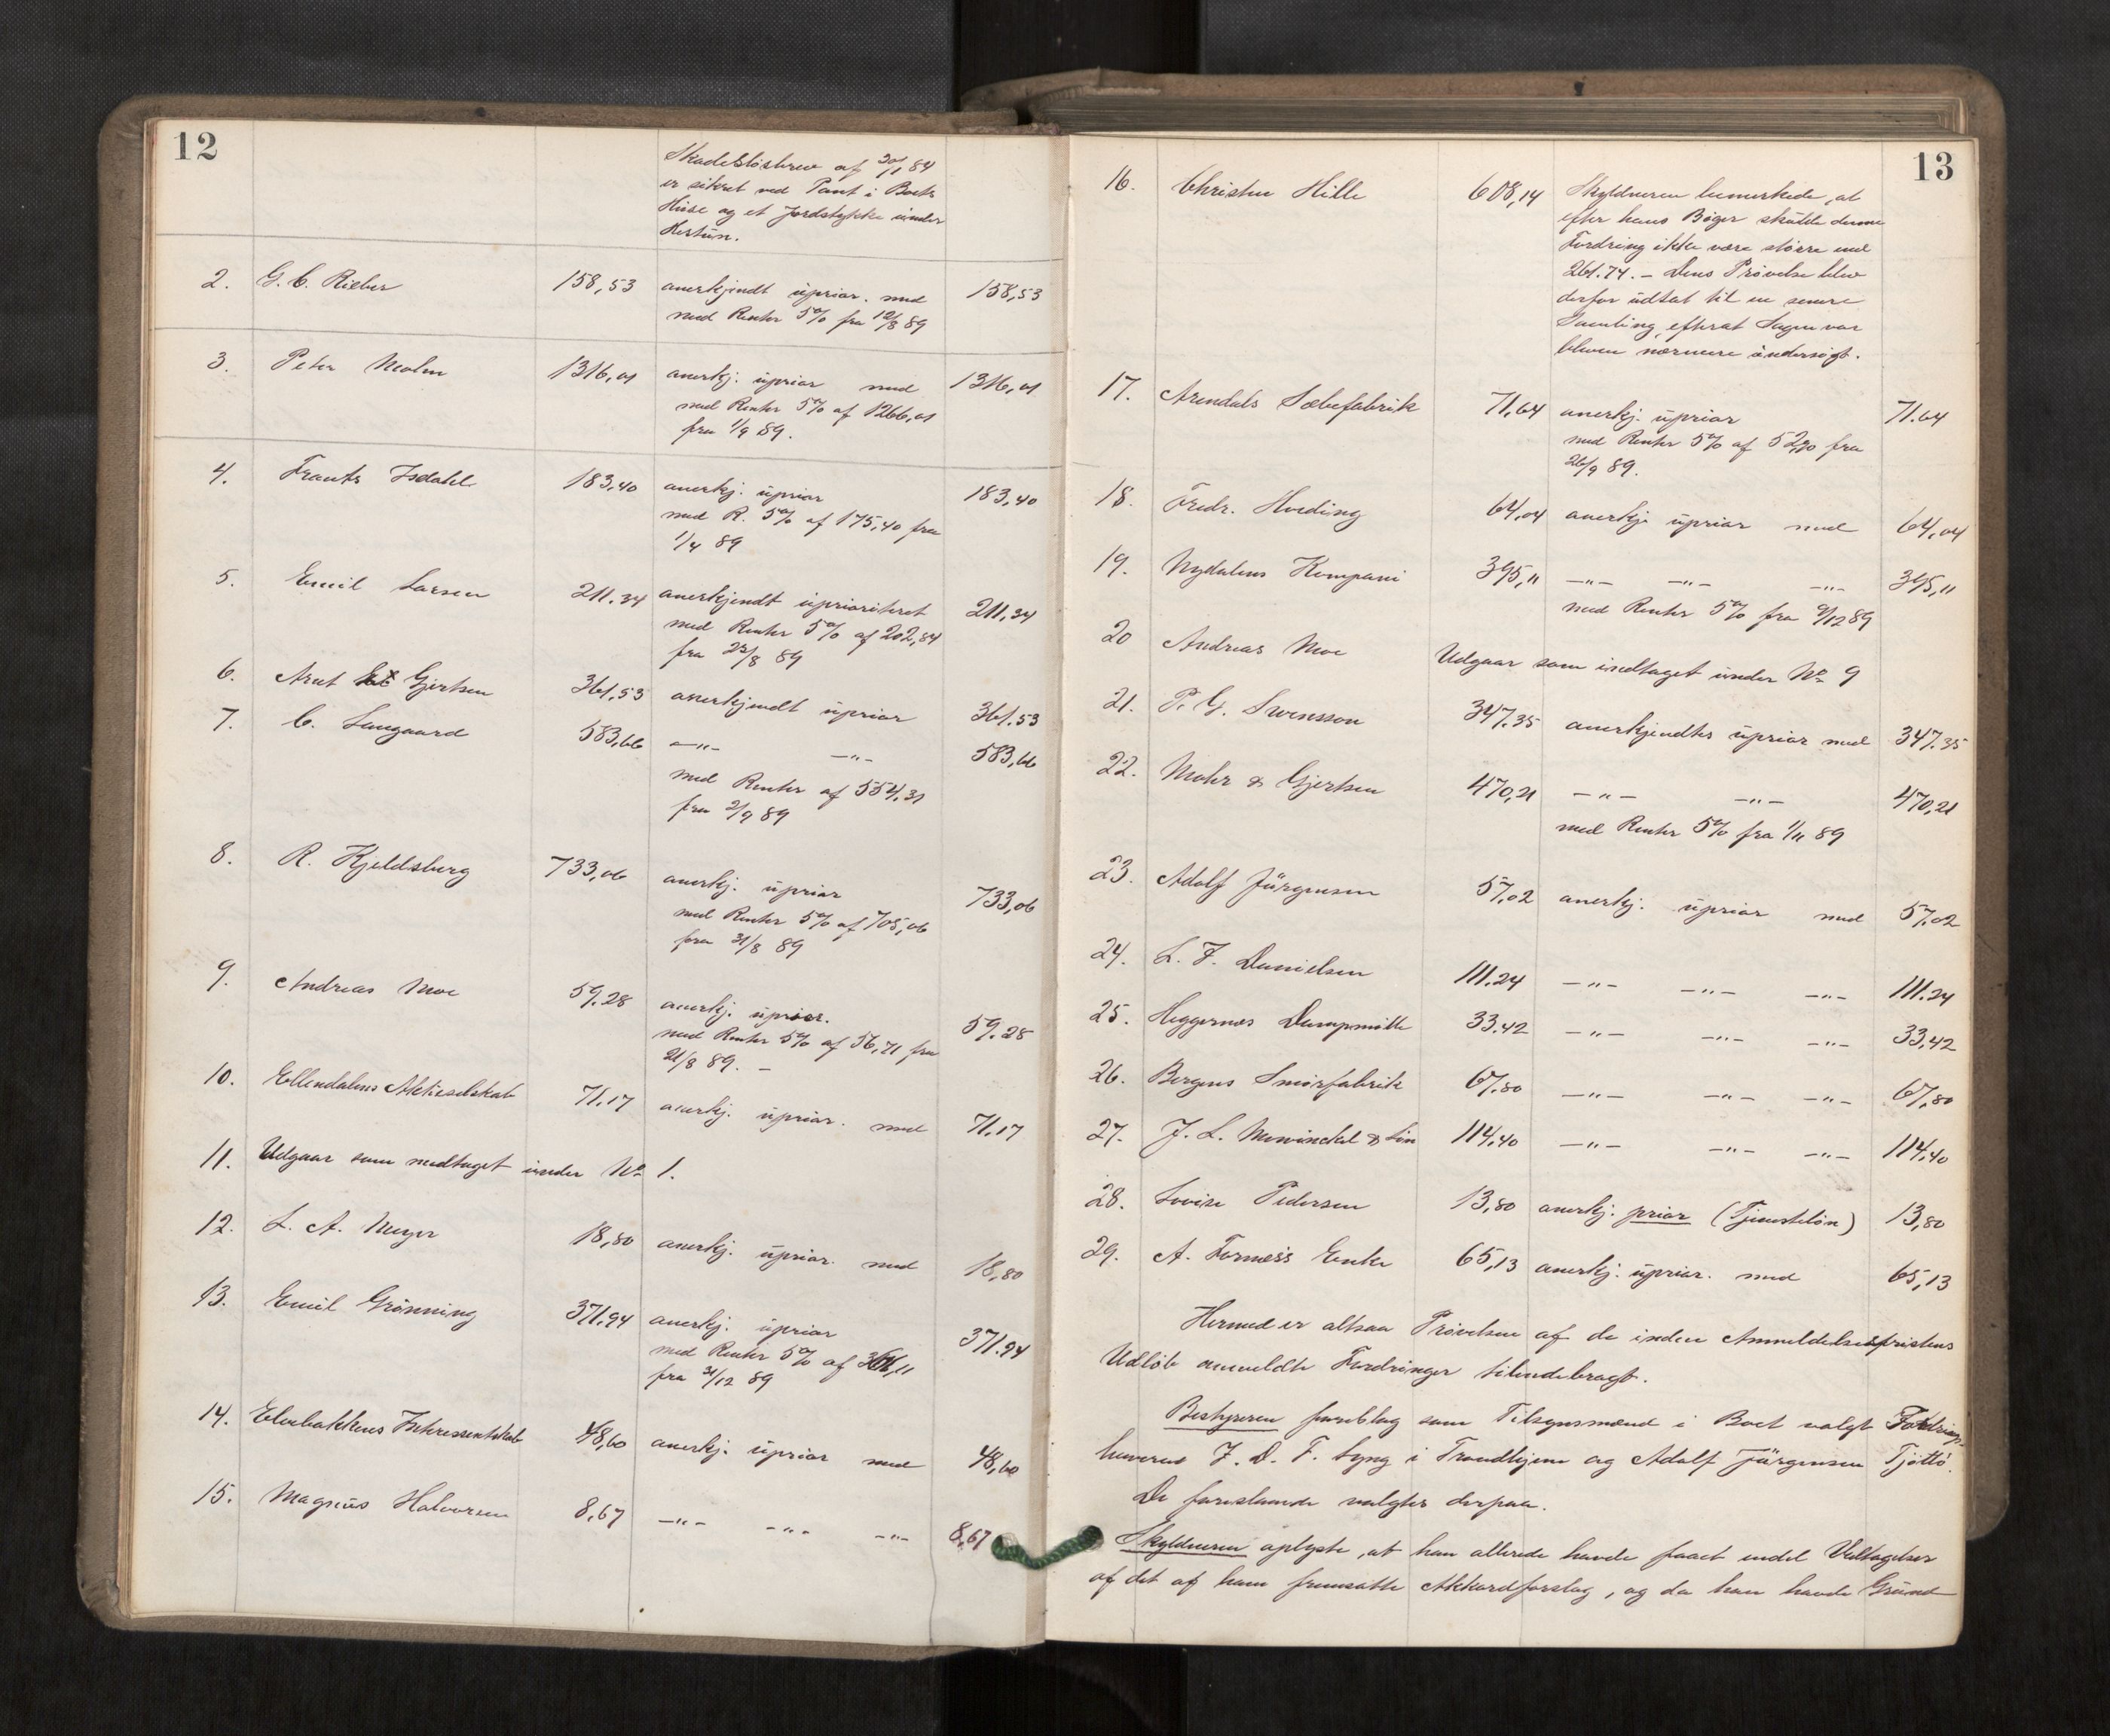 12
Skadesløsbrev af 20/1 84
er sikret ved Pant i Boets
Huse og et Jordstykke under
2. G. C. Rieber 158,53 anerkjendt uprior. med 158,53
med Renter 5% fra 12/8 89
3. Peter Molm 1316,01 anerkj. uprior med 1316,01
med Renter 5% af 1266,01
fra 1/9 89.
4. Frants Isdahl 183,40 anerkj. uprior 183,40
med R. 5% af 175,40 fra
1/4 89
5. Emil Larsen 211.34 anerkjendt uprioriteret 211,34
med Renter 5% af 202,84
fra 23/8 89
6. Arnt Gjertsen 361,53 anerkjendt uprior 361.53
7. C. Langaard 583,66 —"— —"— 583,66
med Renter af 554,31
fra 2/9 89
8. R. Kjeldsberg 733,06 anerkj. uprior 733,06
med Renter 5% af 705,06
fra 31/8 89
9. Andreas Moe 59.28 anerkj. uprior. 59.28
med Renter 5% af 56,71 fra
21/8 89. —
10. Ellendalens Aktieselskab 71.17 anerkj. uprior. med 71.17
11. Udgaar som medtaget under No 1.
12. L. A. Meyer 18,80 anerkj. uprior. med 18,80
13. Emil Grönning 371.94 anerkj. uprior 371.94
med Renter 5% af
fra 31/12 89
14. Elvebakkens Interessentskab 48,60 anerkj. uprior med 48,60
15. Magnus Halvorsen 8,67 —"— —"— —"— 8,67
13
16. Christen Hille 608,14 Skyldneren bemærkede, at
efter hans Bøger skulde denne
Fordring ikke være større end
261.74. — Dens Prøvelse blev
derfor udsat til en senere
Samling, efterat Sagen var
bleven nærmere undersøgt.
17. Arendals Sæbefabrik 71,64 anerkj. uprior 71.64
med Renter 5% af 52,90 fra
26/9 89.
18. Fredr. Hveding 64,04 anerkj. uprior med 64,04
19. Nydalens Kompani 395,11 —"— —"— —"— 395,11
med Renter 5% fra 9/12 89
20 Andreas Moe Udgaar som indtaget under No 9
21. P. G. Svensson 347.35 anerkjendtes uprior med 347.35
22. Mohr & Gjertsen 470,21 —"— —"— 470,21
med Renter 5% fra 1/11 89
23. Adolf Jürgensen 57,02 anerkj. uprior med 57,02
24. L. F. Danielsen 111.24 —"— —"— —"— 111.24
25. Heggernes Dampmølle 33.42 —"— —"— —"— 33,42
26. Bergens Smørfabrik 67.80 —"— —"— —"— 67,80
27. J. L. Mowinckel & Søn 114,40 —"— —"— —"— 114,40
28. Lovise Pedersen 13,80 anerkj. prior (Tjenesteløn) 13,80
29. A. Formo's Enke 65,13 anerkj. uprior. med 65,13
Hermed er altsaa Prøvelsen af de inden Anmeldelsesfristens
Udløb anmeldte Fordringer tilendebragt.
Bestyreren foreslog som Tilsynsmænd i Boet valgt Fordrings-
haverne J. D. F. Lyng i Trondhjem og Adolf Jürgensen Tjøttø.
De foreslaaede valgtes derpaa.
Skyldneren oplyste, at han allerede havde faaet endel Vedtagelser
af det af ham fremsatte Akkordforslag, og da han havde Grund